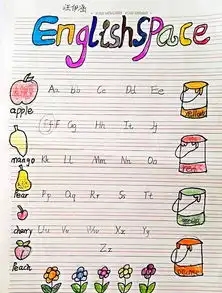 EnglishSpace
Aa bb Cc Dd Ee
apple
Ff Gg Hh Ii Jj
mango
Kk Ll Mm Nn Oo
pear
Pp Qq Rr Ss Tt
cherry
Uu Vv Ww Xx Yy
Zz
Peach